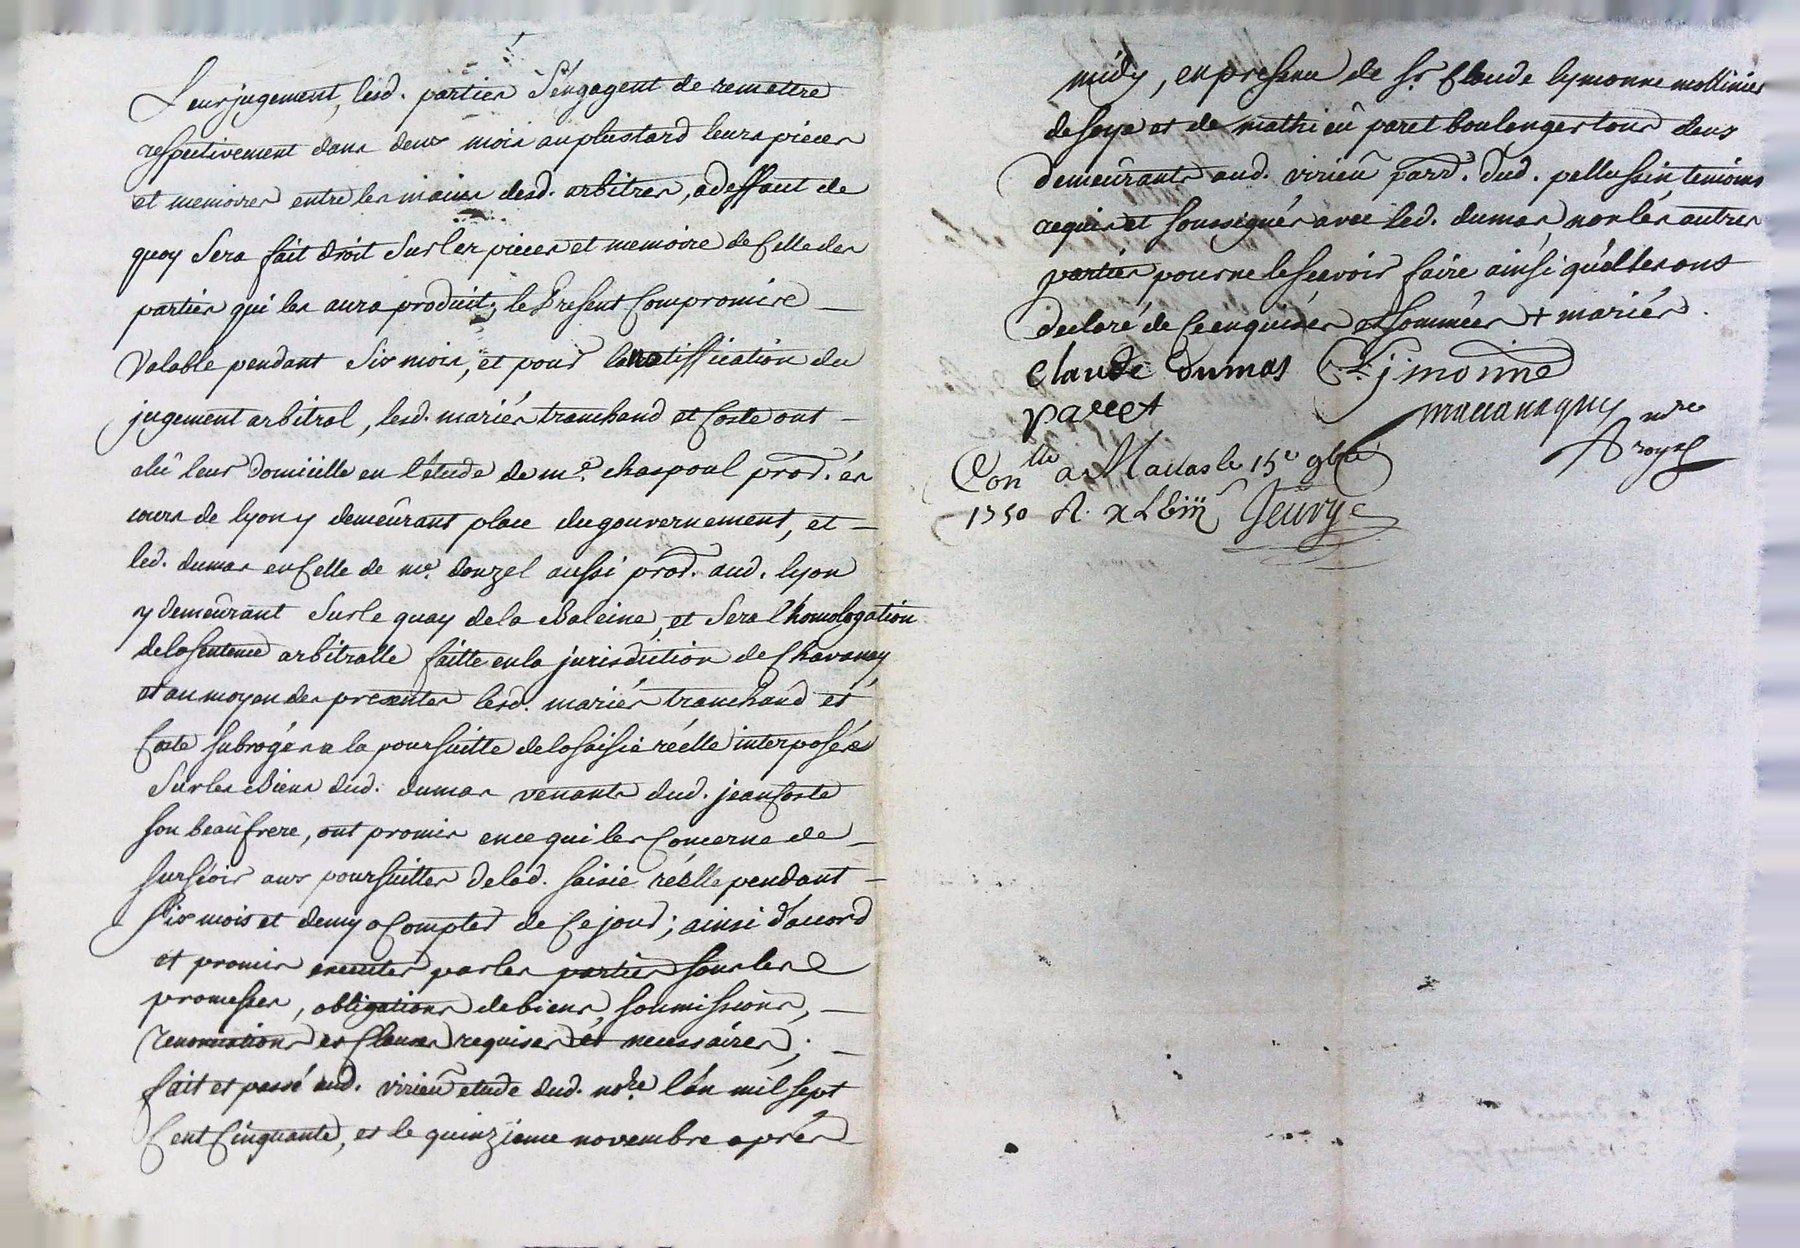 Leur jugement, lesd. parties s'engagent de remettre
respectivement dans deux mois au plustard leurs pieces
et memoires entre les mains desd. arbitres, a deffaut de
quoy sera fait droit sur les pieces et memoire de celle des
parties qui les aura produit, le present compromise
valable pendant six mois, et pour la notiffication du
jugement arbitral, lesd. mariés tranchand et Coste ont
elû leur domicille en l'étude de me. chaspoul prod. és
cours de lyon y demeûrant place du gouvernement, et
led. dumas en celle de me. donzel aussi prod. aud. lyon
y demeûrant sur le quay de la Baleine, et sera l'homologation
de la sentence arbitralle faitte en la jurisdiction de Chavanay
et au moyen des presentes lesd. mariés tranchand et
Coste subrogés a la poursuitte de la saisie réelle interposée
sur les Biens dud. dumas venants dud. jean Coste
son beaûfrere, ont promis en ce qui les concerne de
surséoir aux poursuittes de lad. saisie réelle pendant
six mois et demy a compter de ce jour; ainsi d'accord
et promis executer par les parties sous les
promesses, obligations de biens, soumissions,
renonciations et clauses requises et necessaires;
fait et passé aud. virieû etude dud. nore. l'an mil sept
cent cinquante, et le quinzieme novembre aprés
midy, en presence de sr. Claude lymonne mollinier
de soye et de mathieû paret boulanger tous deux
demeûrants aud. virieû parr. dud. pellussin temoins
requis et soussignés avec led. dumas, non les autres
parties pour ne le sçavoir faire ainsi qu'elles ont
declaré de ce enquises et sommées + mariés.
Claude Dumas C. Ljmonne
Pareet
nore
royal
Conlle a Maclas le 15e 9bre
1750 R. xLviii s Jeurye